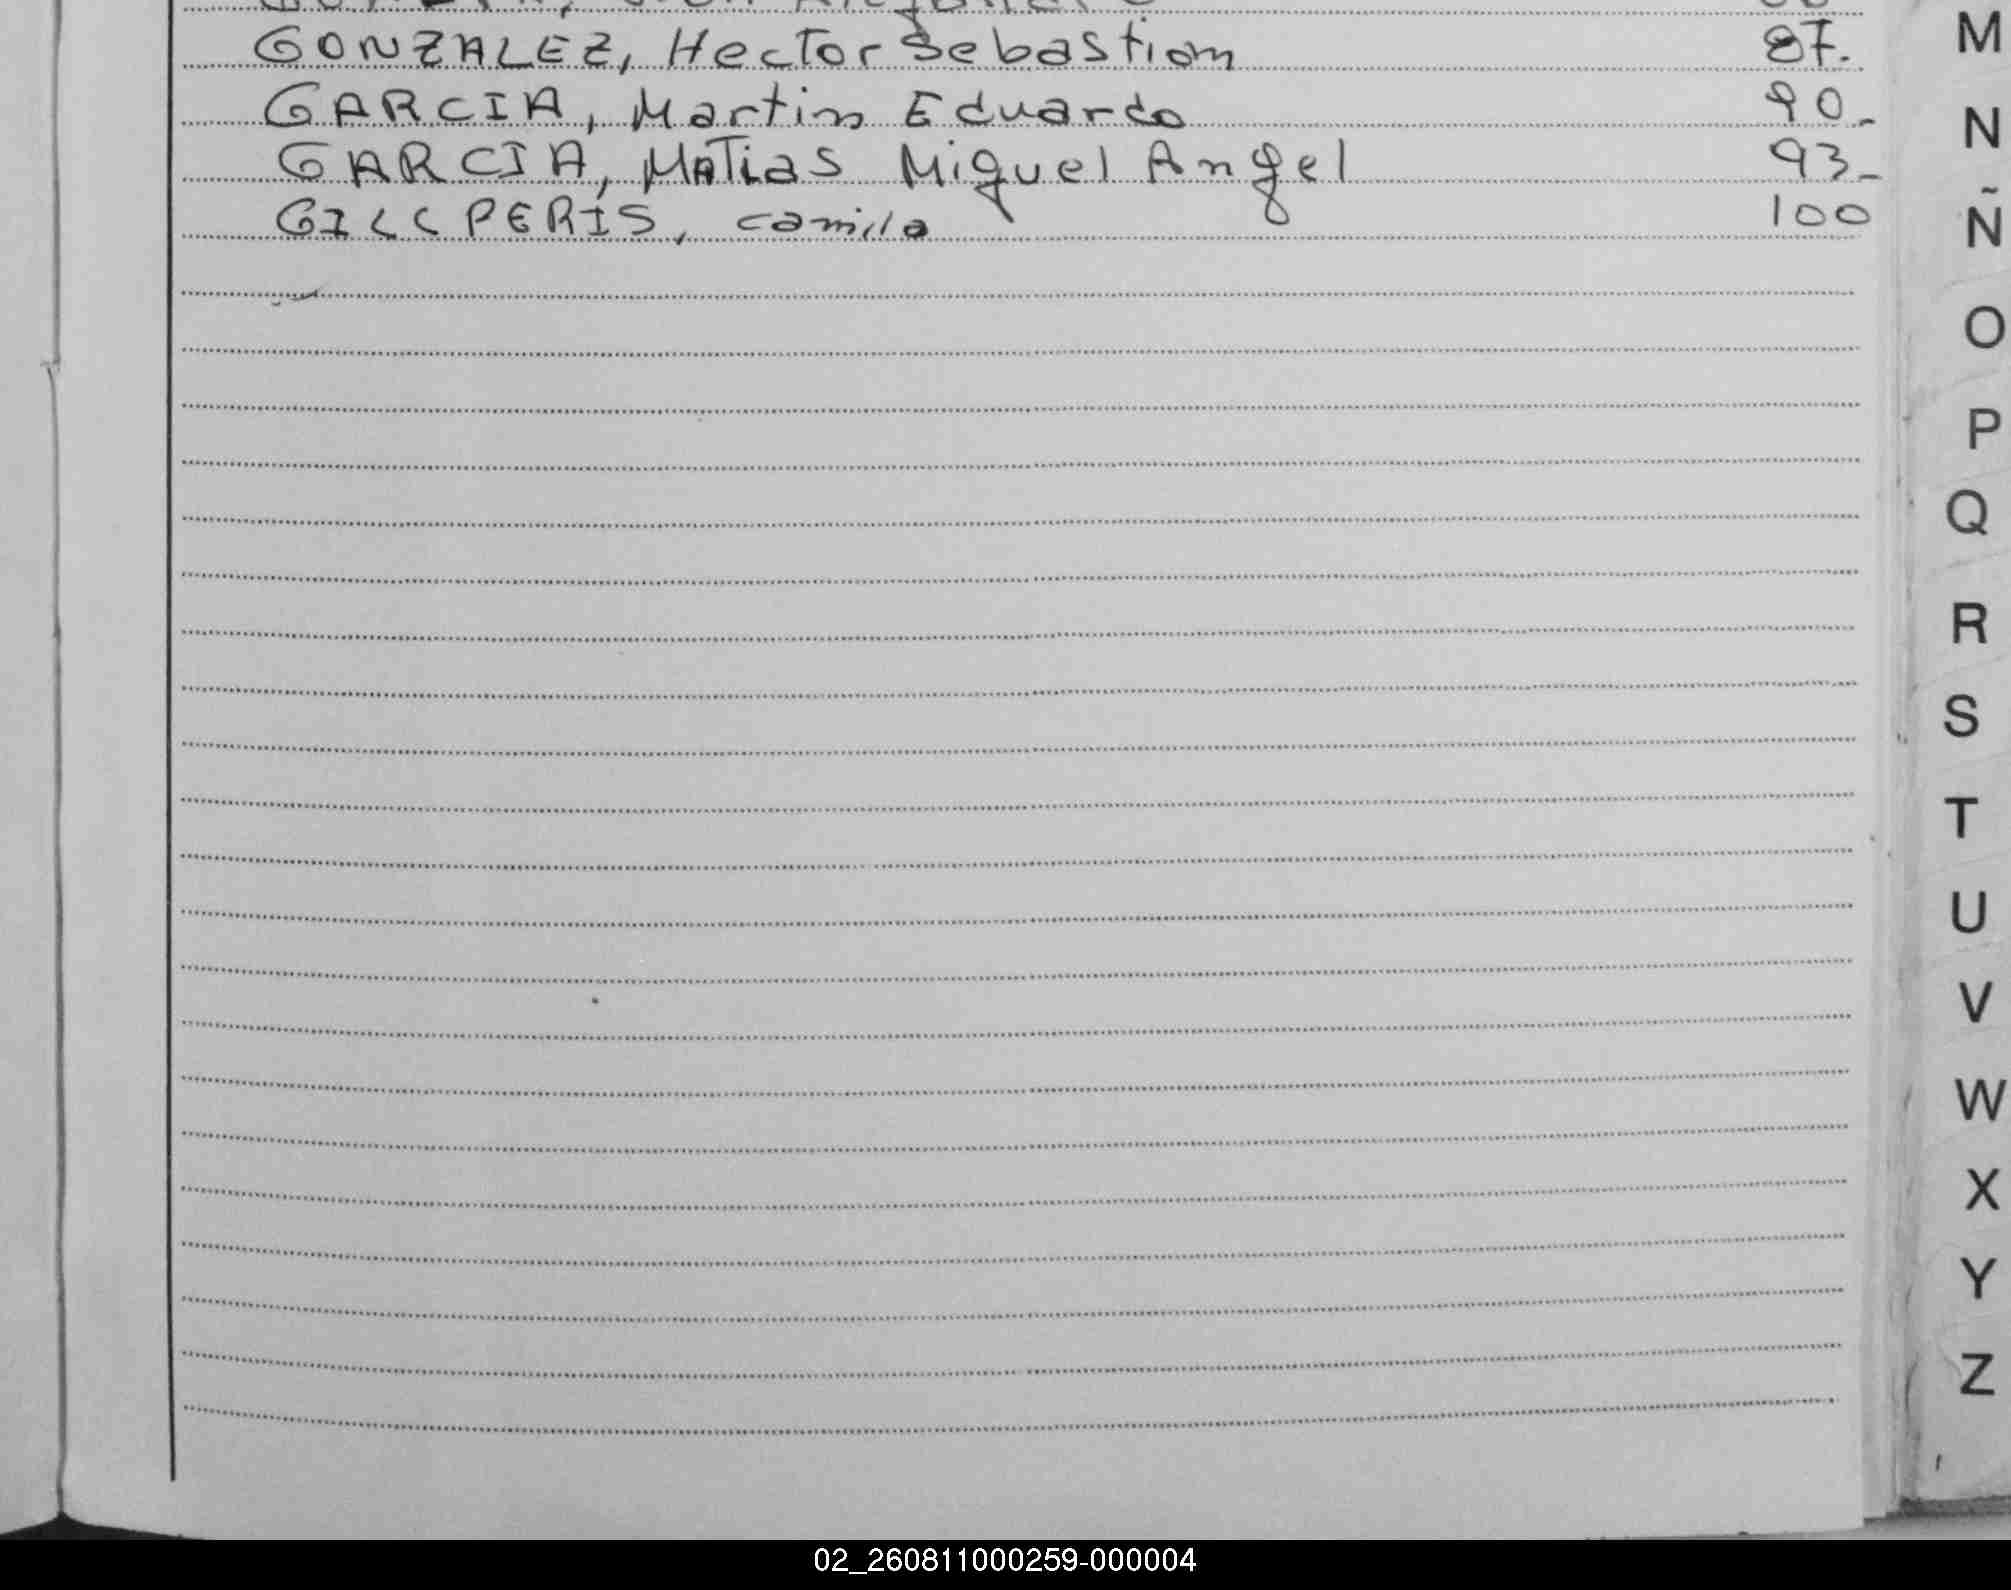 GONZALEZ, Hector Sebastian 87.
GARCIA, Martin Eduardo 90_
GARCIA, Matias Miguel Angel 93_
GILL PERIS, camila 100
M
N
Ñ
O
P
Q
R
S
T
U
V
W
X
Y
Z
02_260811000259-000004